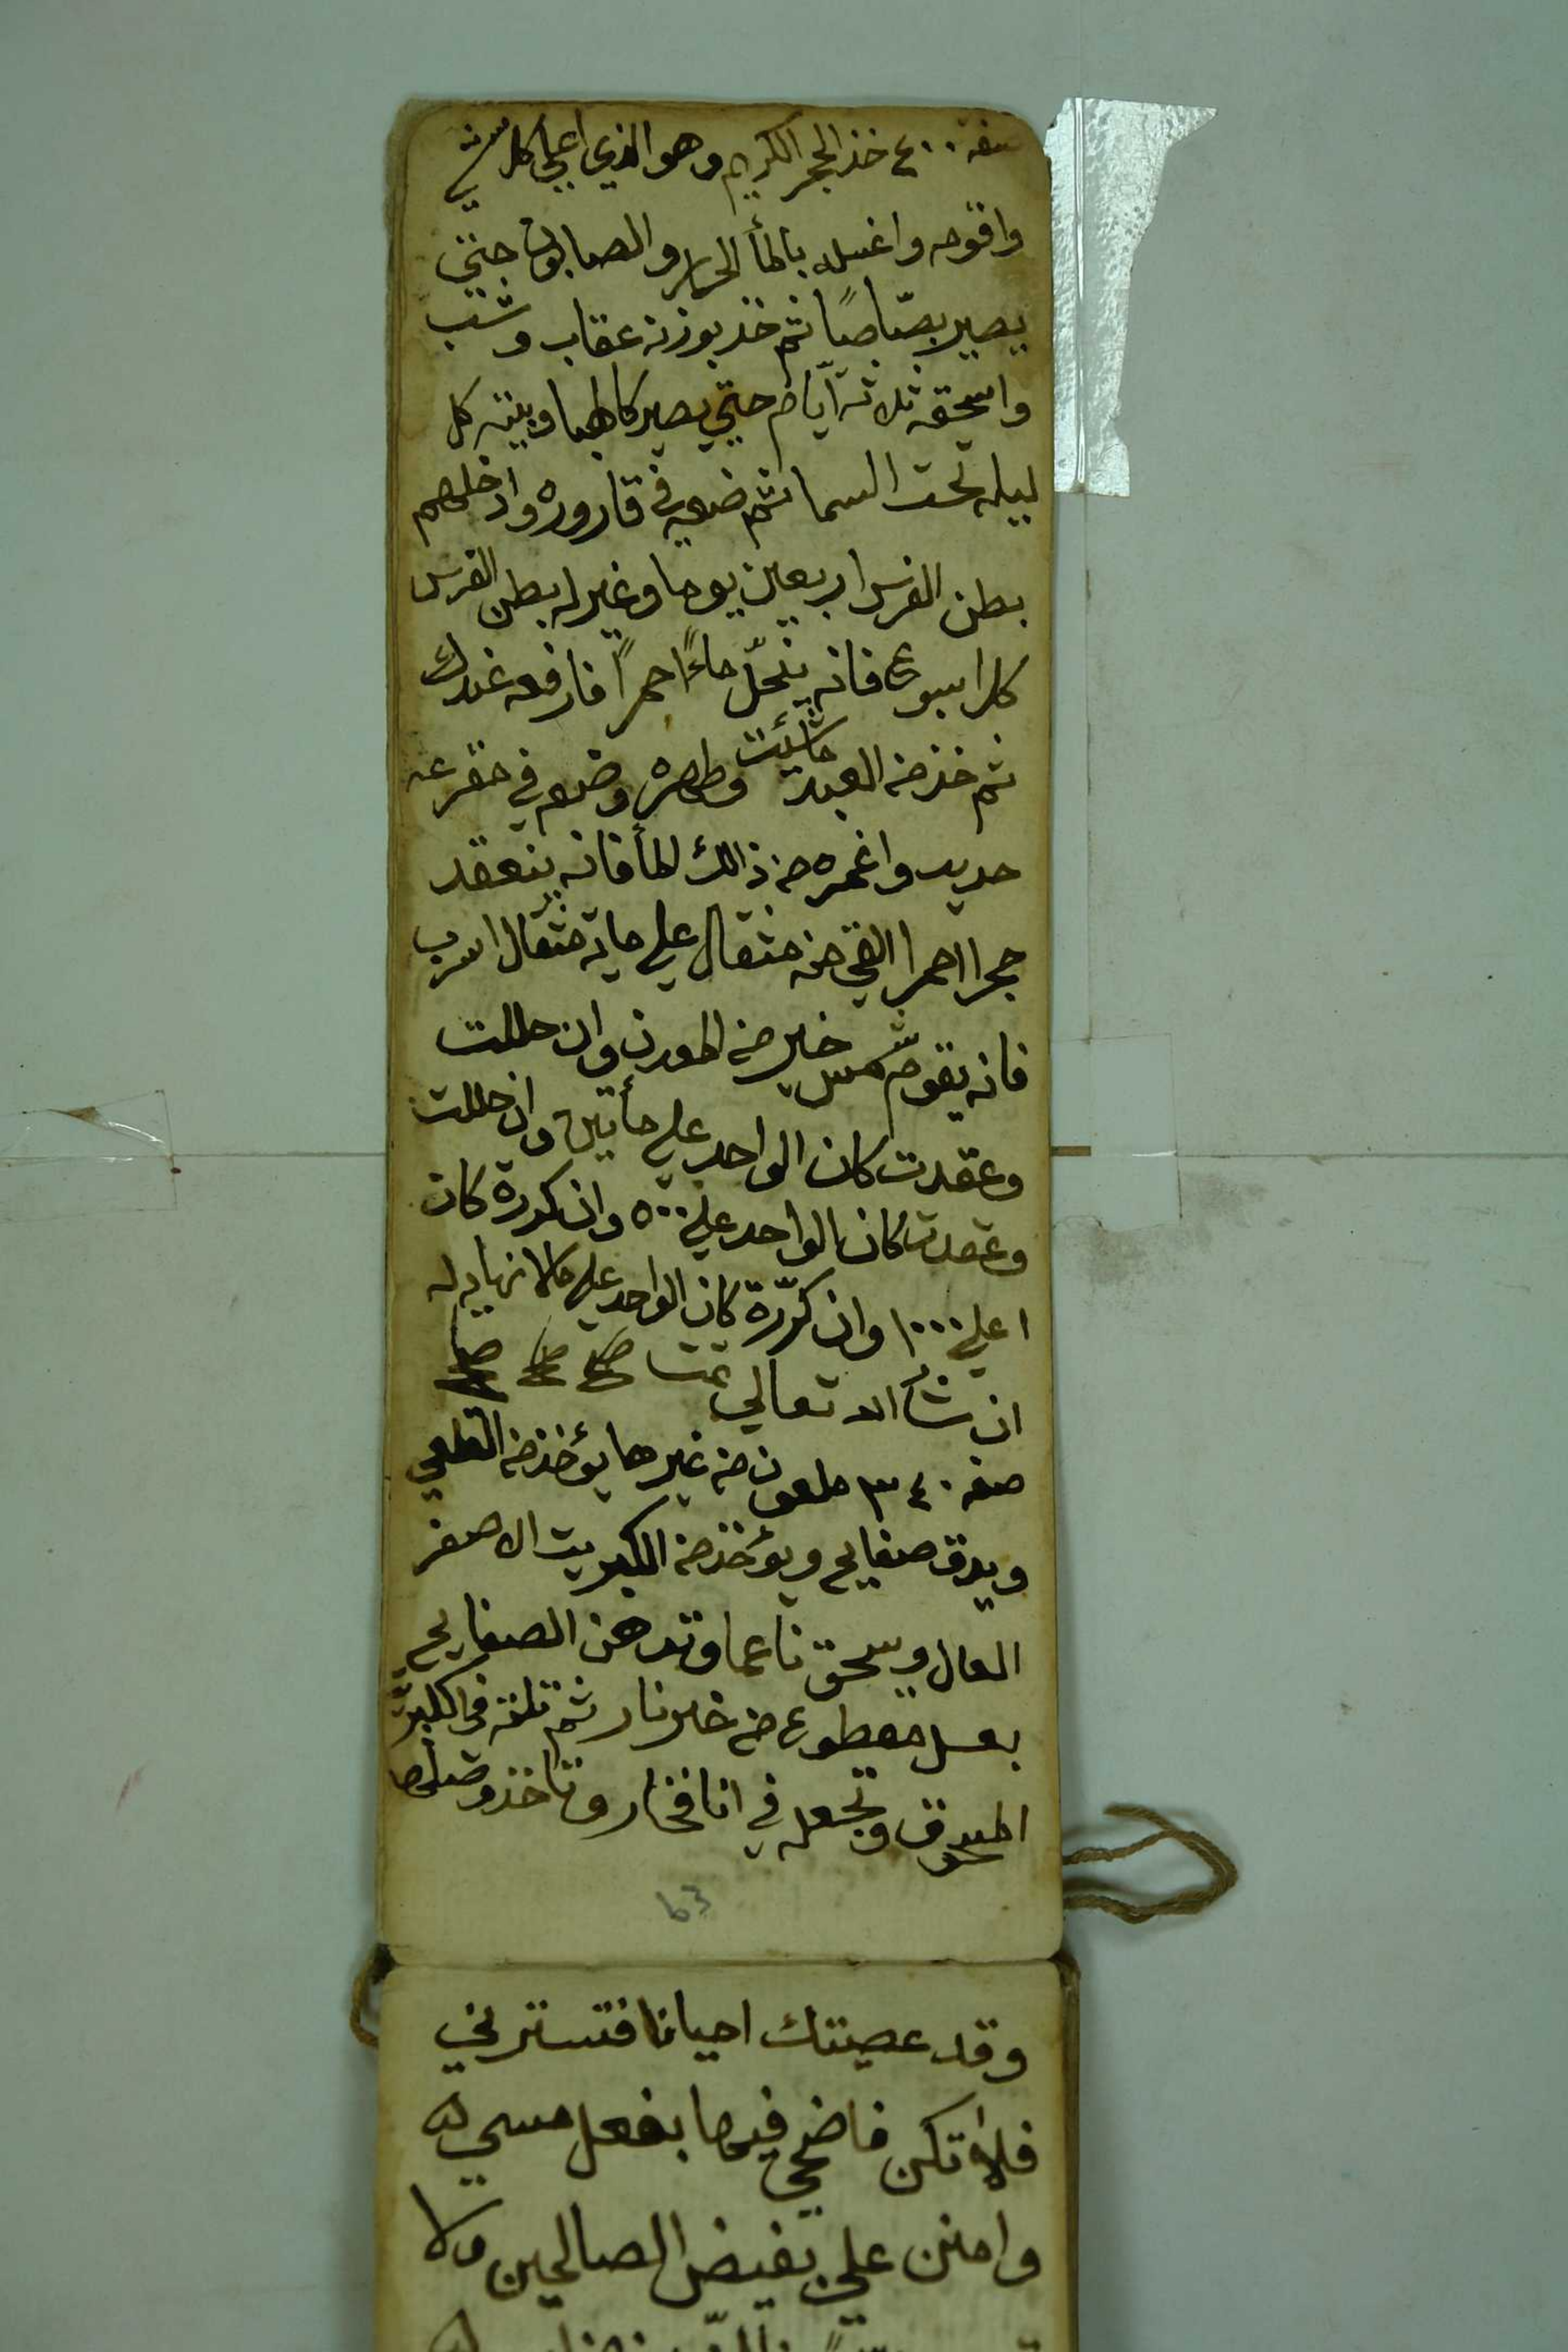 صفة ٤٠٠ خذ الحجر الكريم وهو الذي اعلي كل شي
واقومه واغسله بالمأ الحار والصابون حتي
يصير بصّاصًا ثم خذ بوزنه عقاب وشب
واسحقه ثلاثة ايّام حتي يصير كالهبا وبيته كل
ليله تحت السما ثم ضعه في قاروره وادخلهم
بطن الفرس اربعين يوما وغير له بطن الفرس
كل اسبوع فانه ينحلّ ماءً احمرًا فارفعه عندك
ثم خذ من العبد ما شئت وطهره وضعه في مقرعه
حديد واغمره من ذالك المأ فانه ينعقد
حجرا احمرا القي منه مثقال علي ماية مثقال اسرب
فانه يقوم شمس خير من المعدن وان حللت
وعقدت كان الواحد علي مأتين وان حللت
وعقدت كان الواحد علي ٥٠٠ وان كررة كان
ا علي ١٠٠٠ وان كرّرة كان الواحد علي مالا نهايه له
ان شأ الله تعالي تمت صح صح صح
صفه ٣٤٠ ملعون من غيرها يؤخذ من القلعي
ويدق صفايح ويؤخذ من الكبريت الاصفر
العال ويسحق ناعما وتدهن الصفايح
بعسل مقطوع من غير نار ثم تلته في الكبريت
المسحوق وتجعله في انا فخار وتاخذ وصلها
63
وقد عصيتك احيانا فتسترني
فلا تكن فاضحي فيها بفعل مسي
وامنن علي بفيض الصالحين ولا